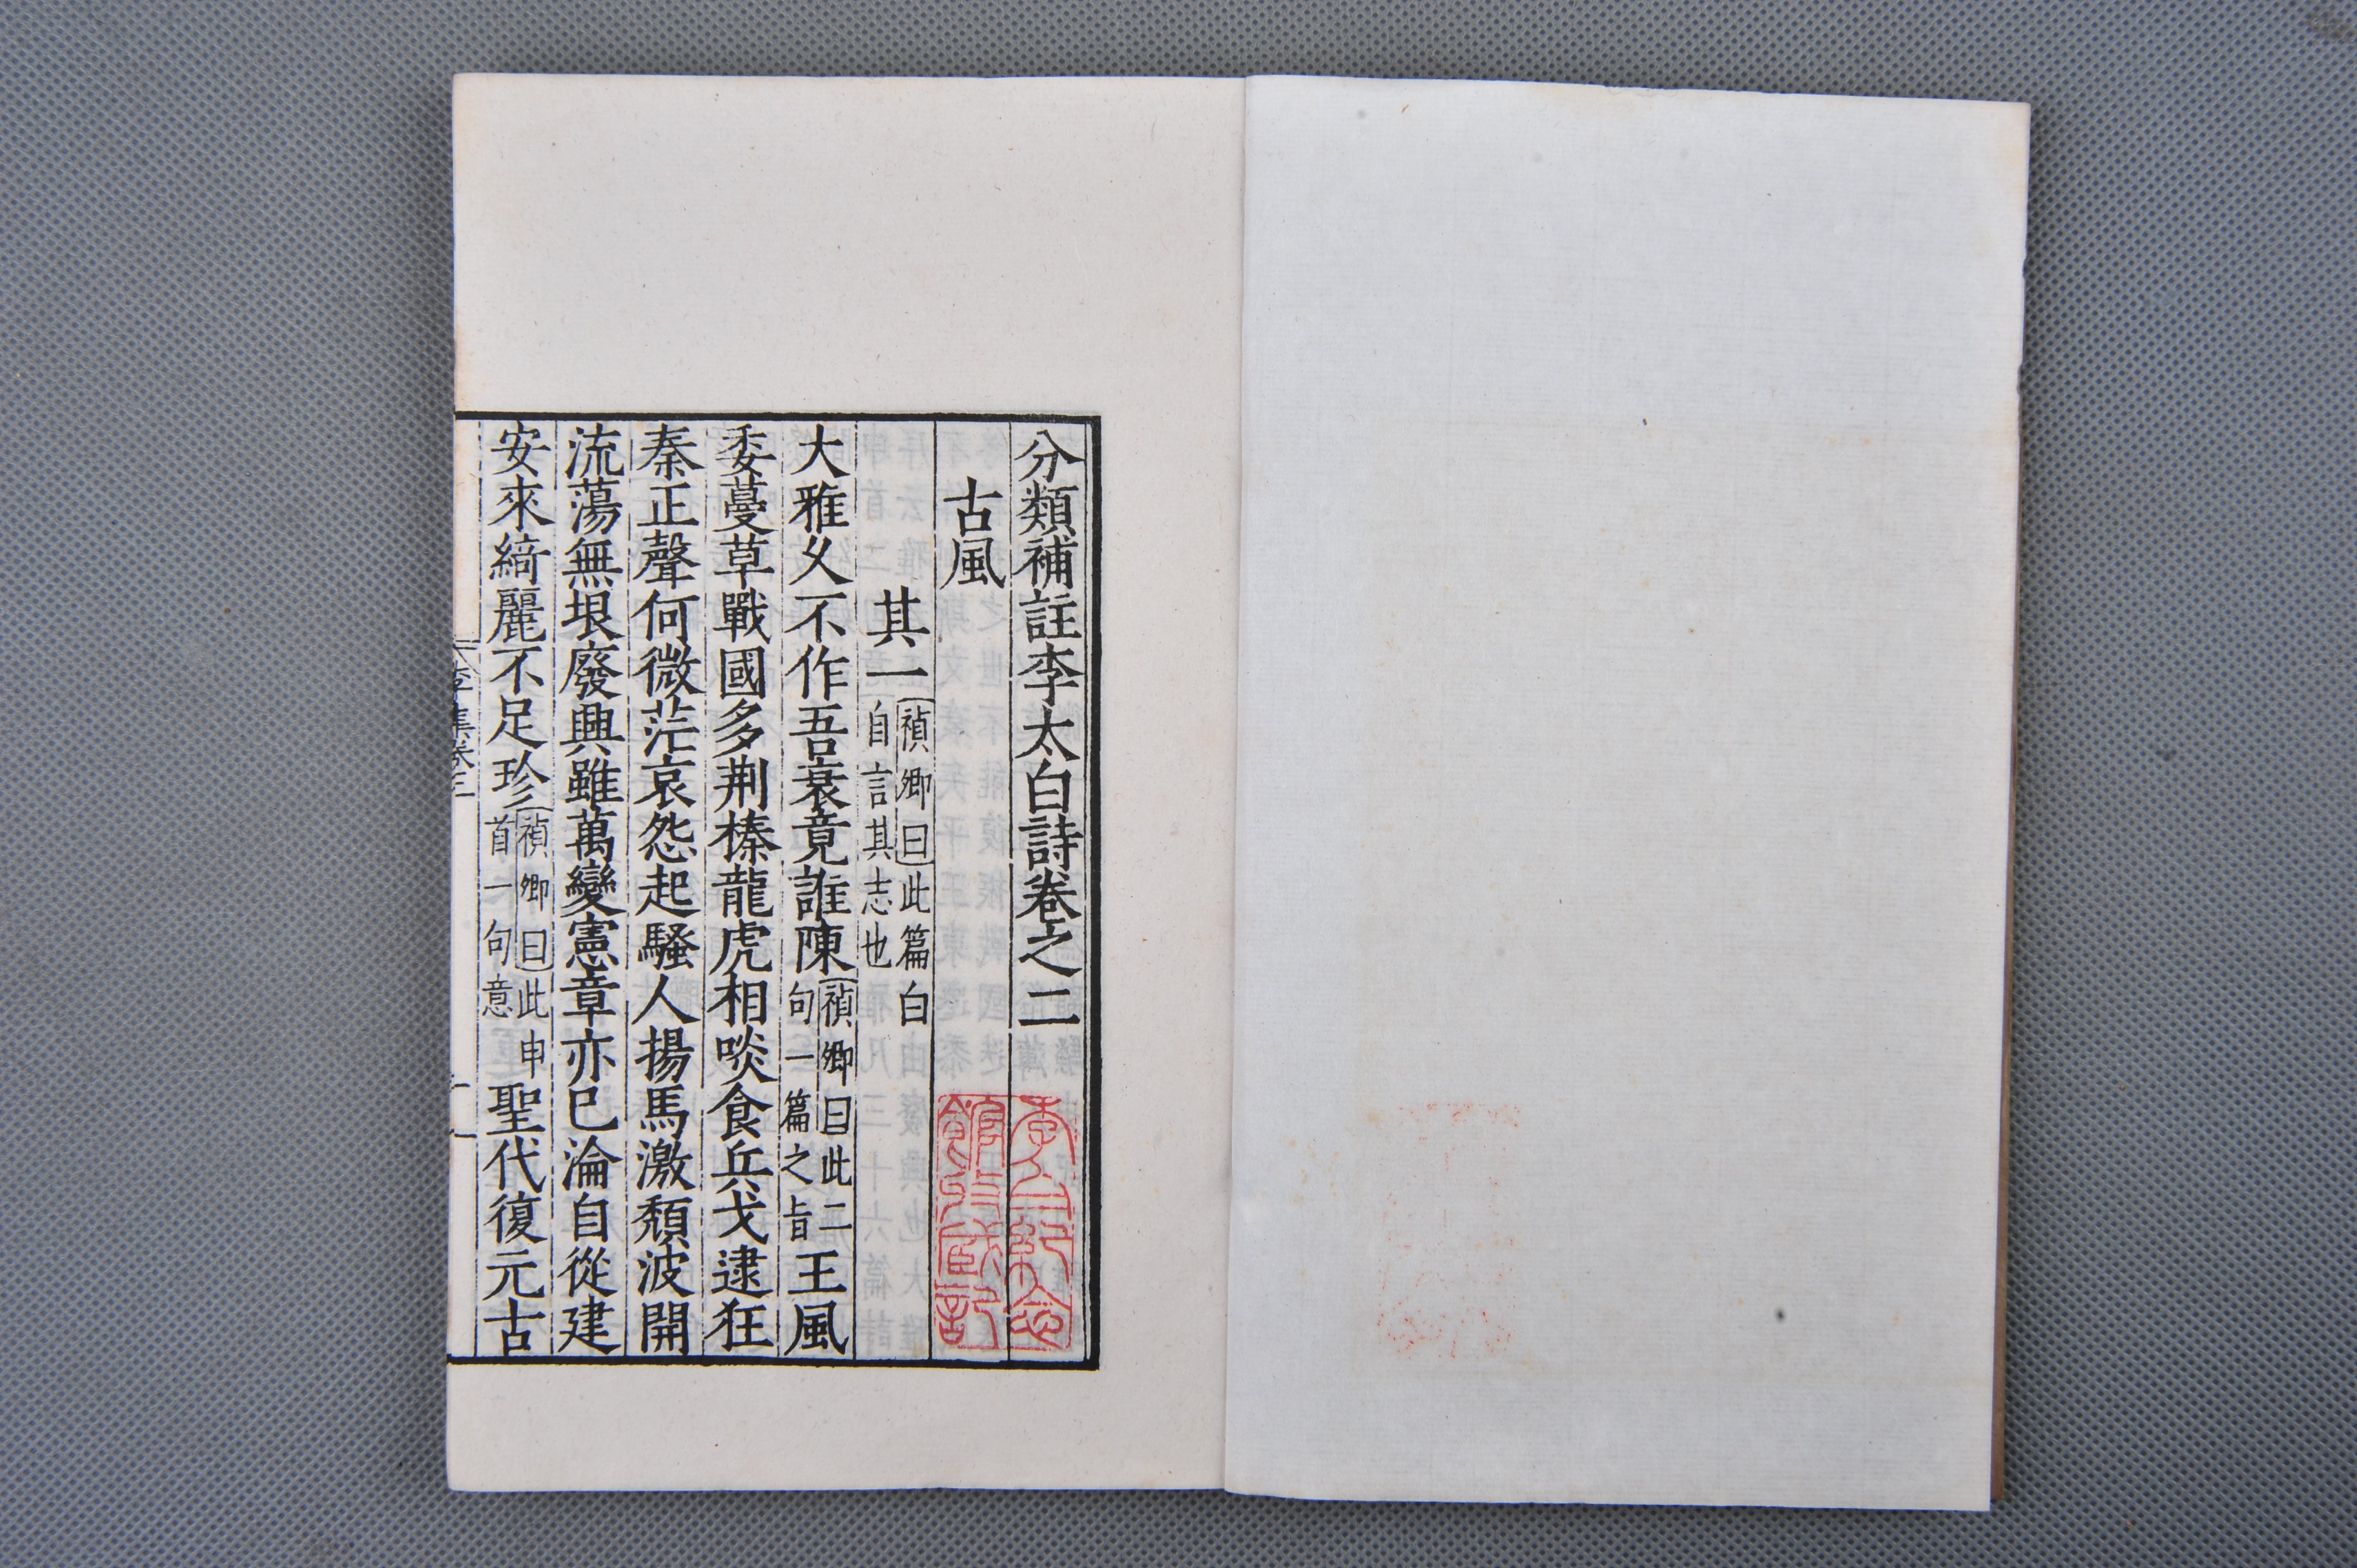 分類補註李太白詩卷之二
古風
其一
禎卿曰此篇白
自言其志也
大雅久不作吾衰竟誰陳
禎卿曰此二
句一篇之旨
王風
委蔓草戰國多荆榛龍虎相啖食兵戈逮狂
秦正聲何微茫哀怨起騷人揚馬激頹波開
流蕩無垠廢興雖萬變憲章亦已淪自從建
安來綺麗不足珍
禎卿曰此申
首一句意
聖代復元古